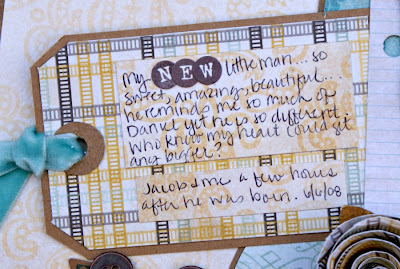 my NEW little man... so
sweet, amazing, beautiful...
he reminds me so much of
Daniel yet he is so different.
Who knew my heart could get
any bigger?
Jacob & me a few hours
after he was born. 6/6/08